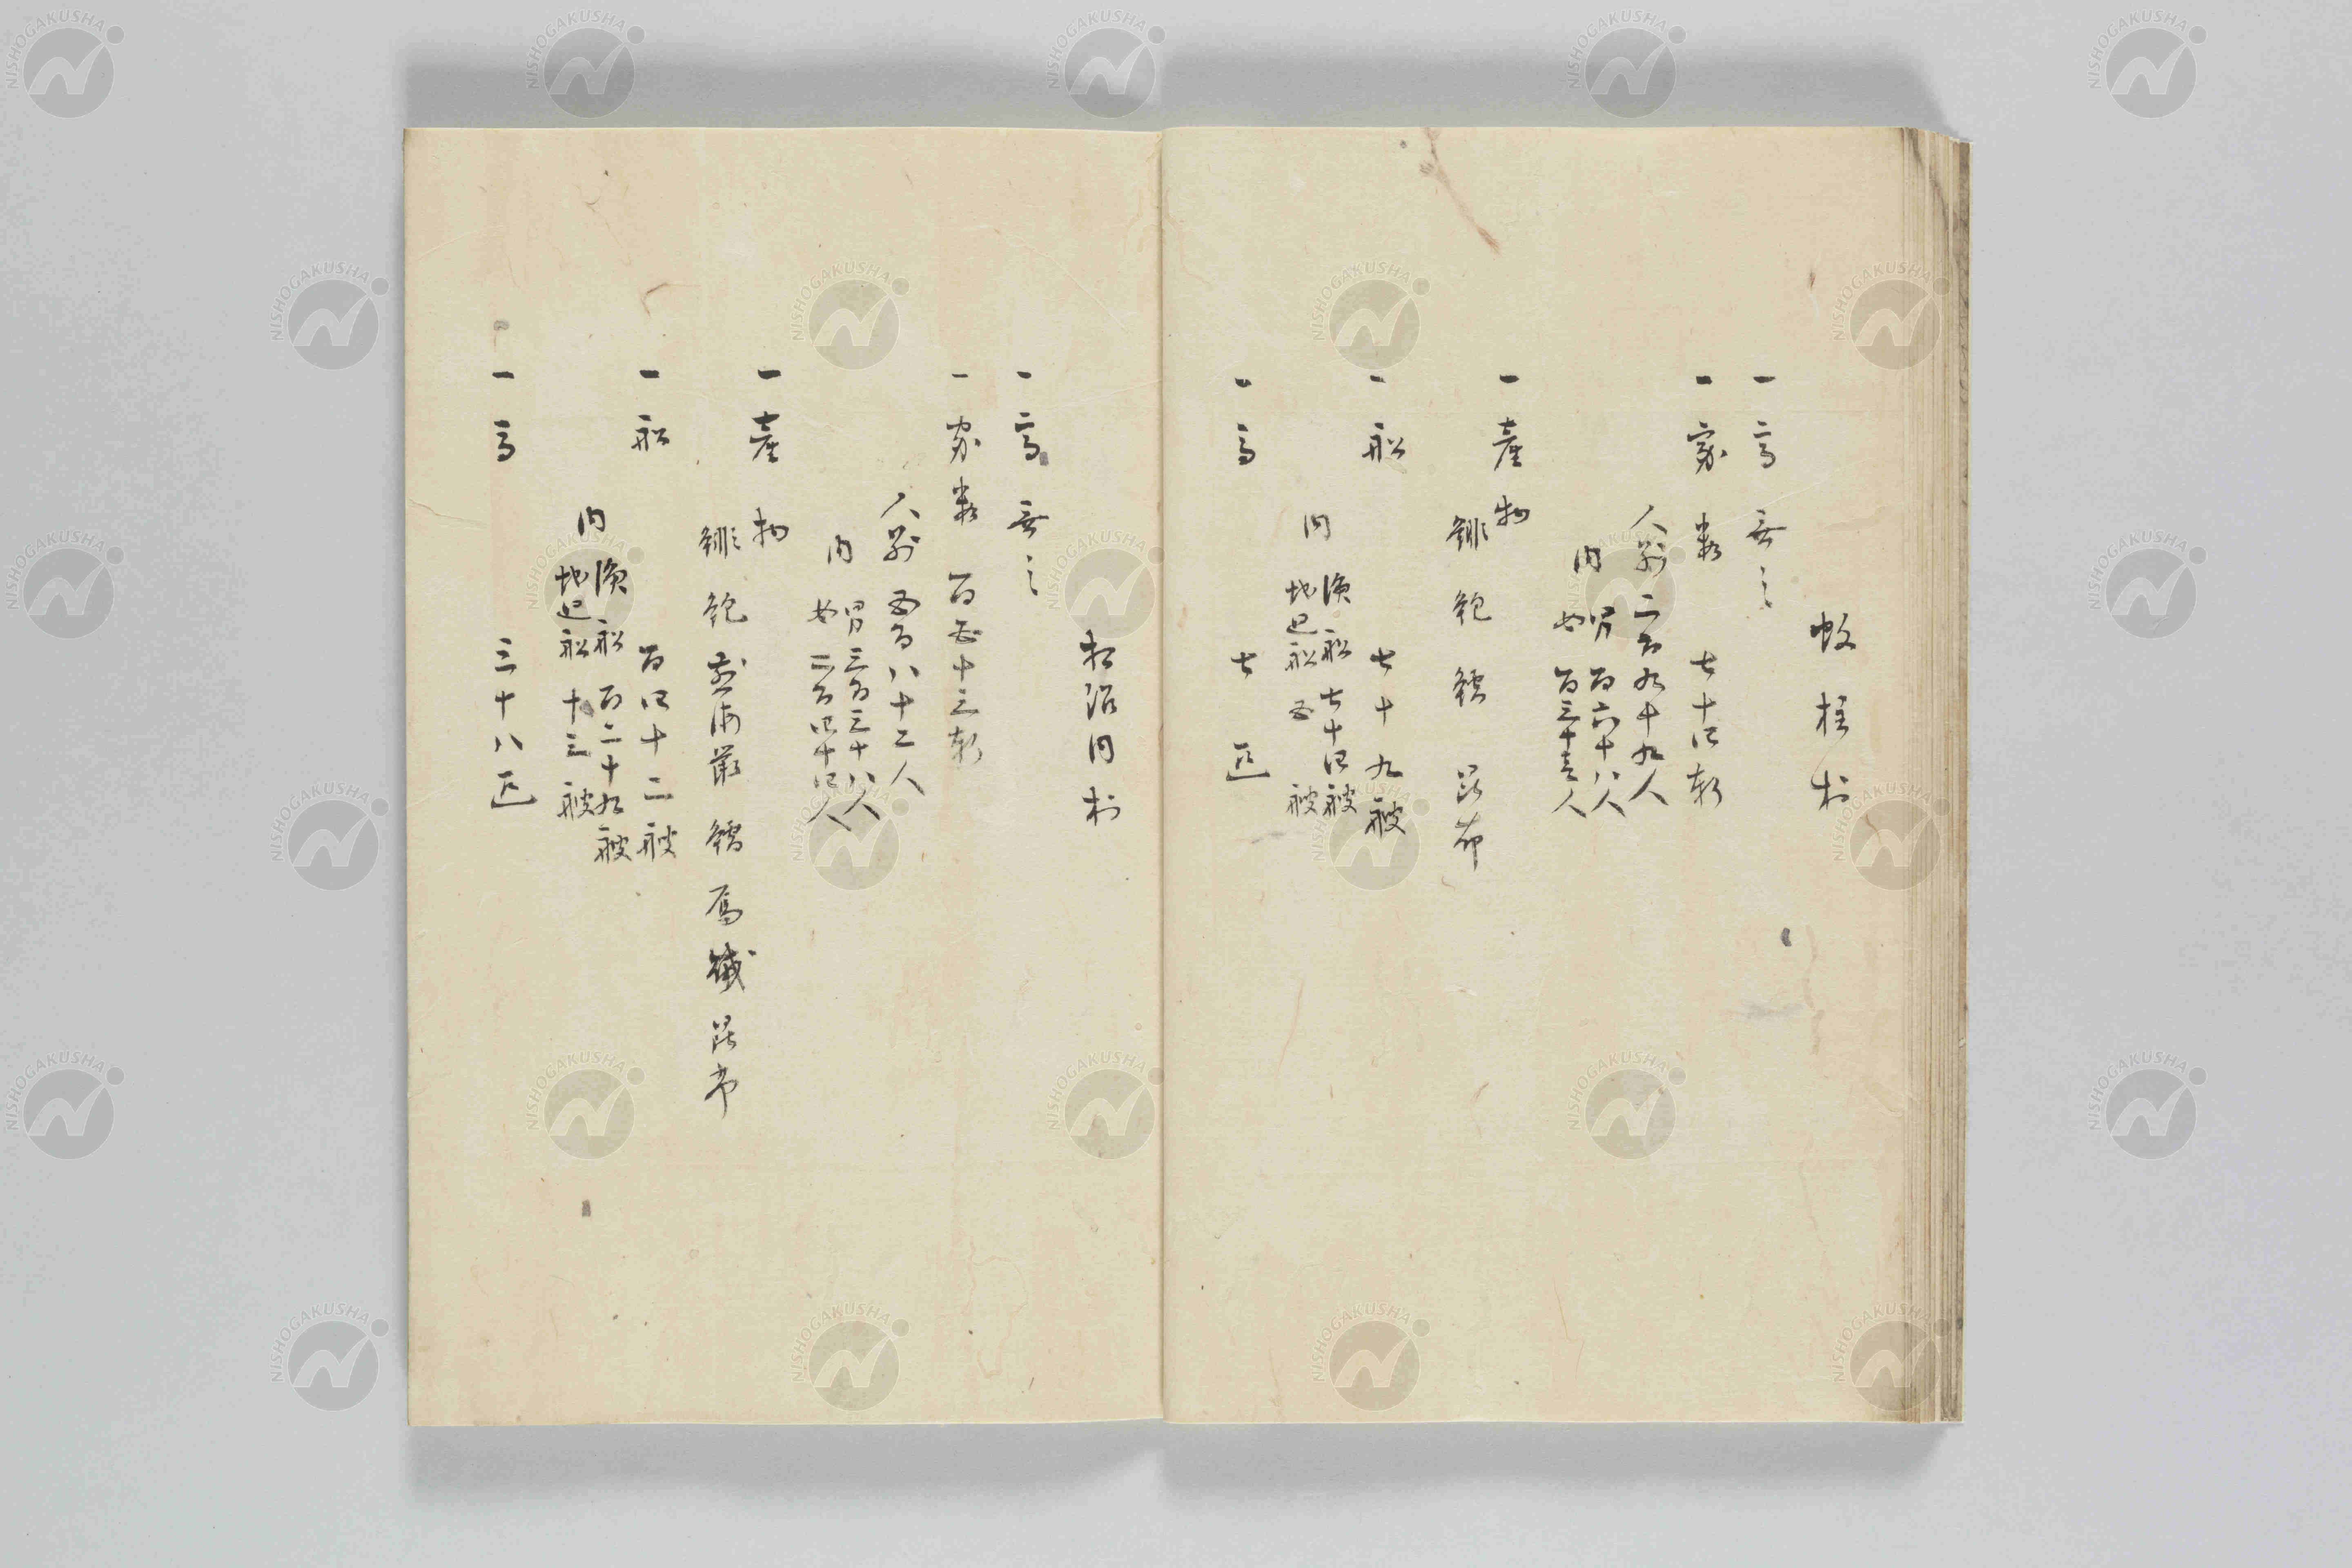 蚊柱村
一高無之
一家数 七十四軒
人別二百九十九人
内 男 百六十八人
女 百三十壱人
一産物
鯡 鮑 鱈 昆布
一船 七十九艘
内 漁船 七十四艘
地廻船 五艘
一馬 七疋
相沼内村
一高無之
一家数 百五十三軒
人別 五百八十二人
内 男三百三十八人
女二百四十四人
一産物
鯡 鮑 煎海鼠 鱈 昆布
一船 百四十二艘
内 漁船 百二十九艘
地廻船 十三艘
一馬 三十八疋
NISHOGAKUSHA